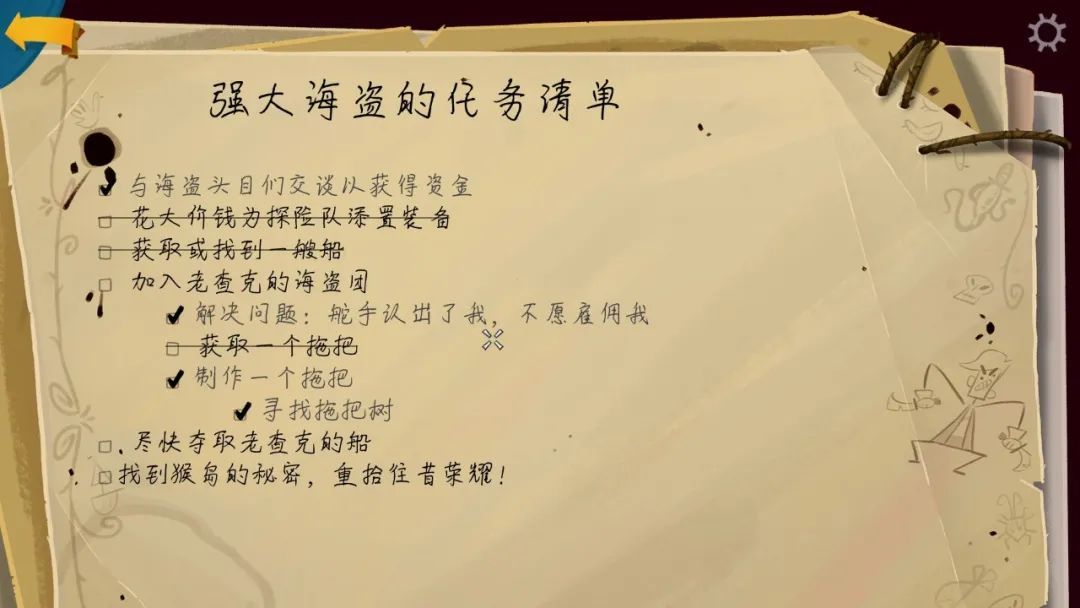 强大海盗的任务清单
与海盗头目们交谈以获得资金
花大价钱为探险队添置装备
获取或找到一艘船
加入老查克的海盗团
解决问题：舵手认出了我，不愿雇佣我
获取一个拖把
制作一个拖把
寻找拖把树
尽快夺取老查克的船
找到猴岛的秘密，重拾往昔荣耀！